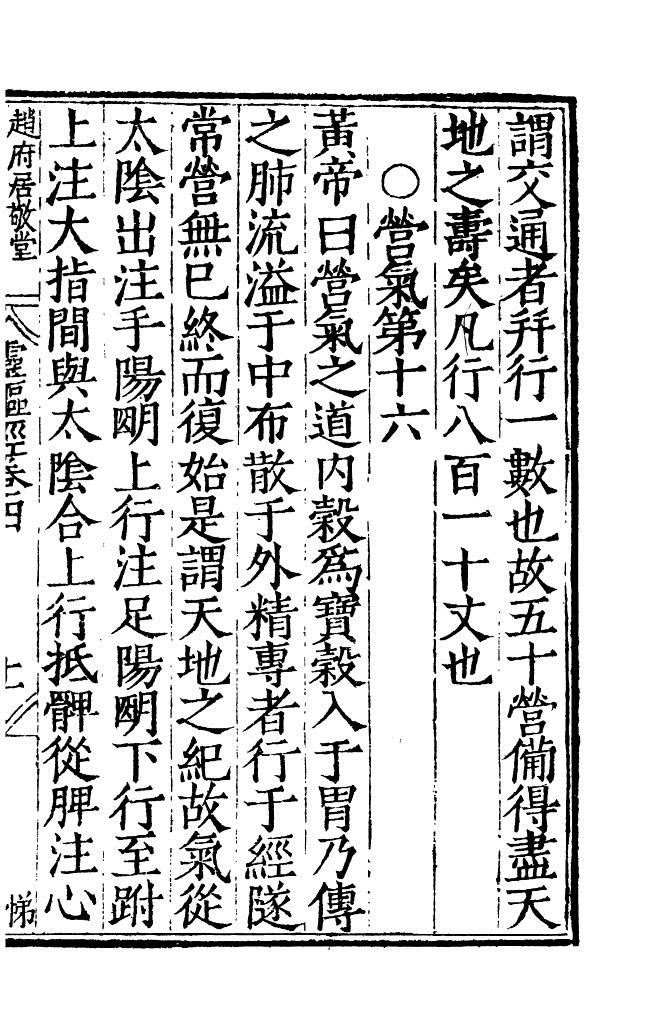 謂交通者并行一數也故五十營備得盡天
地之壽矣凡行八百一十丈也
○營氣第十六
黃帝曰營氣之道内穀爲寶穀入于胃乃傳
之肺流溢于中布散于外精專者行于經隧
常營無已終而復始是謂天地之紀故氣從
太陰出注手陽明上行注足陽明下行至跗
上注大指間與太陰合上行抵髀從脾注心
趙府居敬堂
靈樞經卷四
上
悌